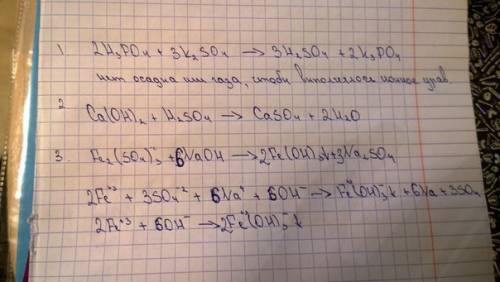 1. 2H₃PO₄ + 3K₂SO₄ → 3H₂SO₄ + 2K₃PO₄
нет осадка или газа, чтобы выполнялось ионное урав.
2 Ca(OH)₂ + H₂SO₄ → CaSO₄ + 2H₂O
3. Fe₂(SO₄)₃ + 6NaOH → 2Fe(OH)₃↓ + 3Na₂SO₄
2Fe⁺³ + 3SO₄⁻² + 6Na⁺ + 6OH⁻ → Fe(OH)₃↓ + 6Na + 3SO₄
2Fe⁺³ + 6OH⁻ → 2Fe(OH)₃↓